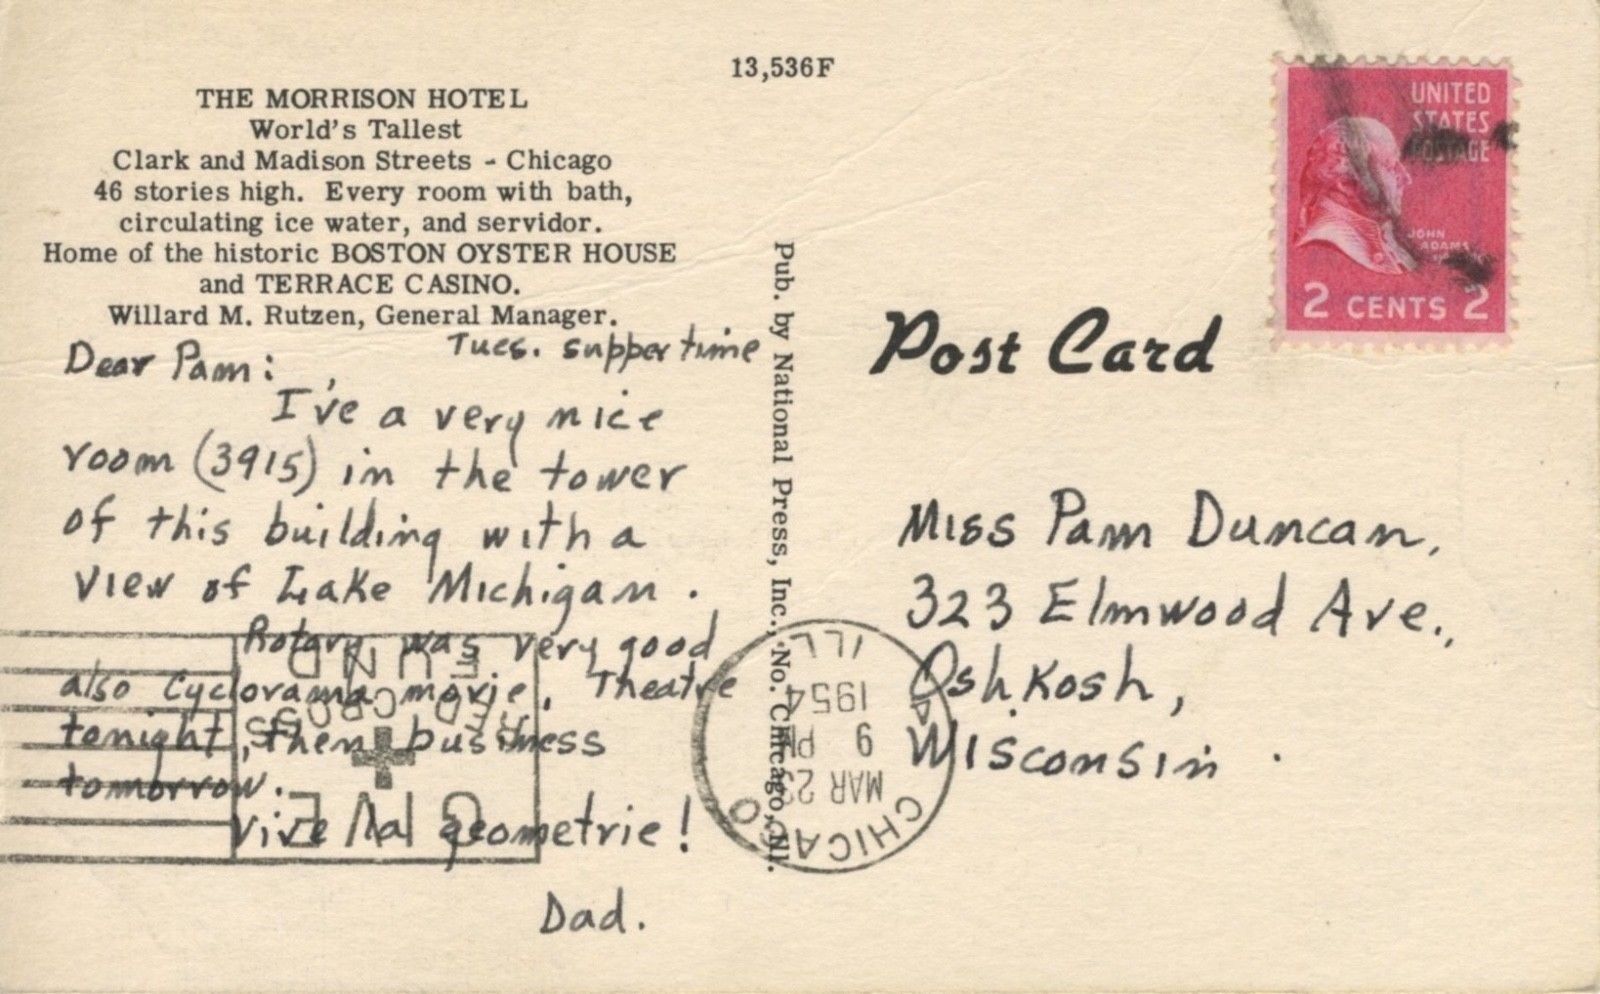 13,536F
THE MORRISON HOTEL
World's Tallest
Clark and Madison Streets - Chicago
46 stories high. Every room with bath,
circulating ice water, and servidor.
Home of the historic BOSTON OYSTER HOUSE
and TERRACE CASINO.
Willard M. Rutzen, General Manager.
Tues. supper time
Dear Pam:
I've a very nice
room (3915) in the tower
of this building with a
view of Lake Michigan.
Rotary was very good
also Cyclorama movie, Theatre
tonight, then business
tomorrow.
vive la geometrie!
Dad.
Pub. by National Press, Inc., No. Chicago, Ill.
UNITED
STATES
POSTAGE
JOHN
ADAMS
2 CENTS 2
Post Card
Miss Pam Duncan,
323 Elmwood Ave.,
Oshkosh,
Wisconsin.
CHICAGO
MAR 23
9 PM
1954
ILL
GIVE
RED CROSS
FUND